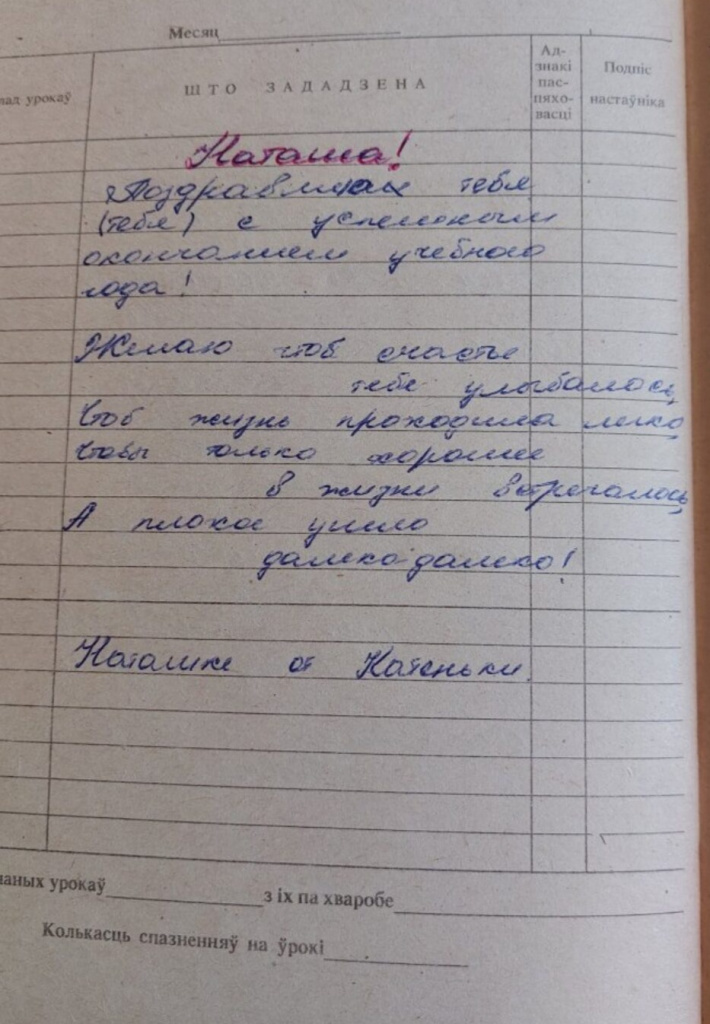 Месяц
лад урокаў
ШТО ЗАДАДЗЕНА
Ад-
знакі
пас-
пяхо-
васці
Подпіс
настаўніка
Наташа!
Поздравляю тебя
(тебя) с успешным
окончанием учебного
года!
Желаю чтоб счастье
тебе улыбалось,
Чтоб жизнь проходила легко,
Чтобы только хорошее
в жизни встречалось,
А плохое ушло
далеко-далеко!
Наташке от Катеньки.
чаных урокаў
з іх па хваробе
Колькасць спазненняў на ўрокі